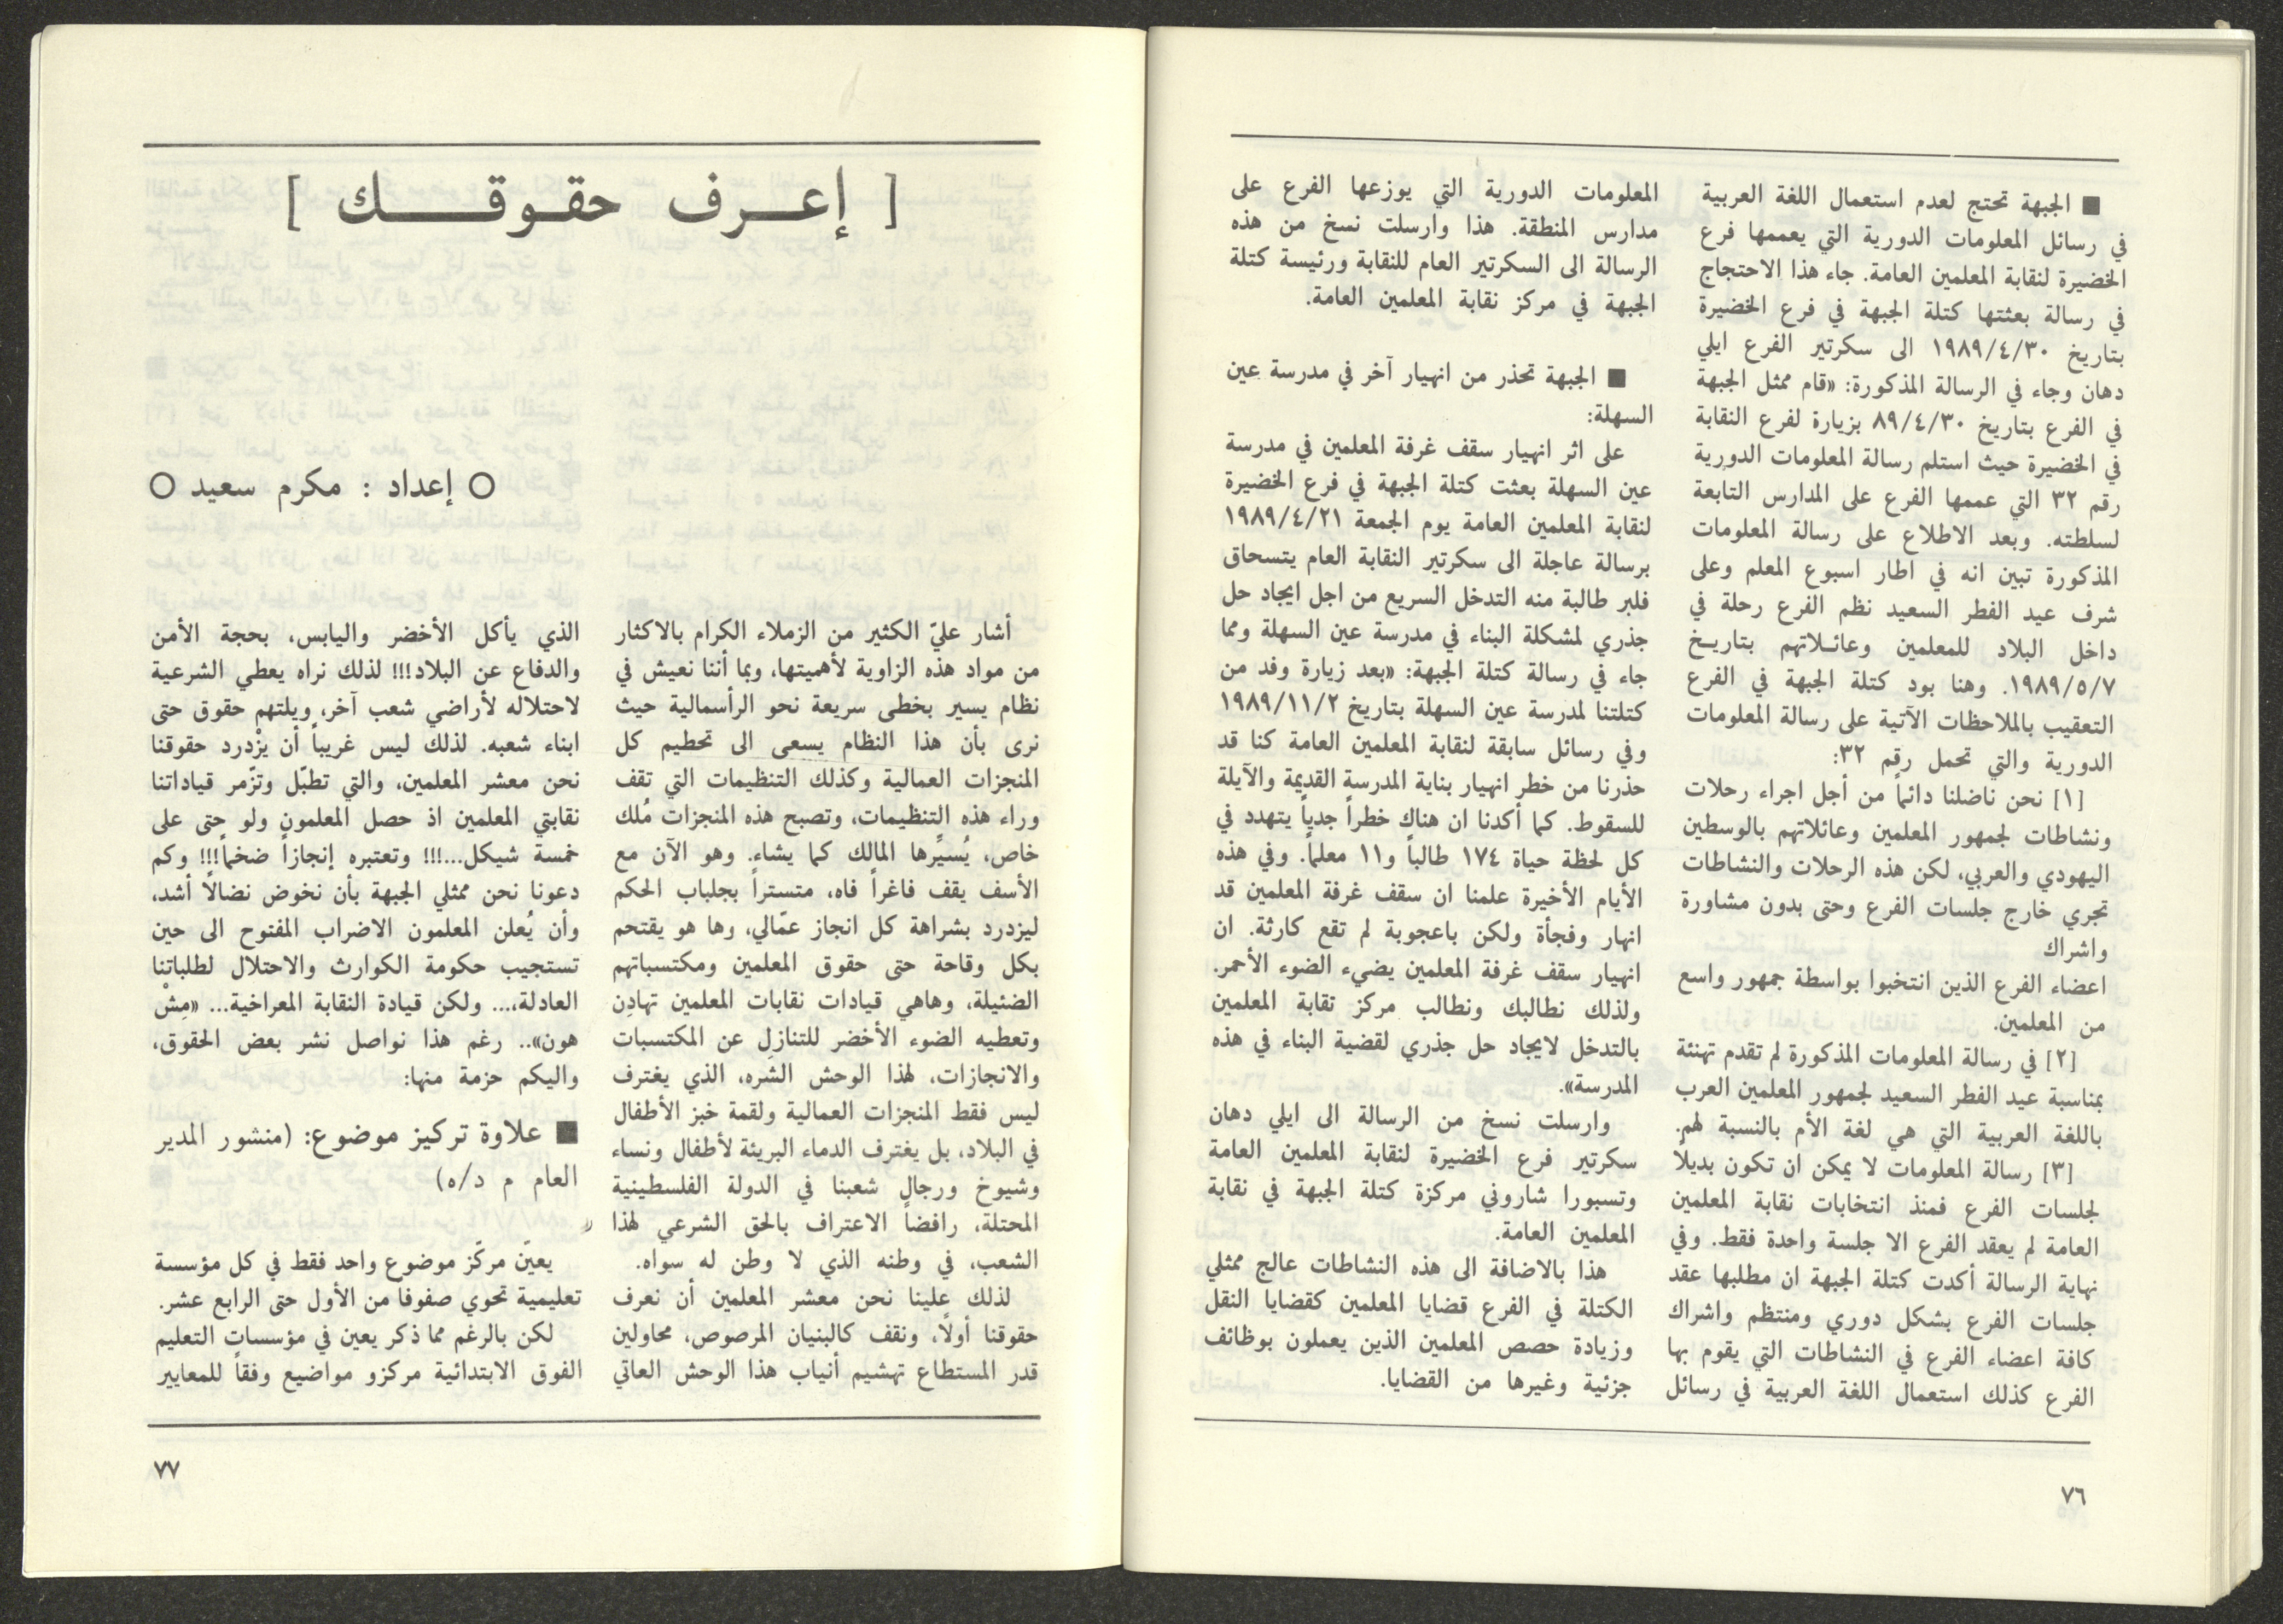 ■ الجبهة تحتج لعدم استعمال اللغة العربية
في رسائل المعلومات الدورية التي يعممها فرع
الخضيرة لنقابة المعلمين العامة. جاء هذا الاحتجاج
في رسالة بعثتها كتلة الجبهة في فرع الخضيرة
بتاريخ ١٩٨٩/٤/٣٠ الى سكرتير الفرع ايلي
دهان وجاء في الرسالة المذكورة: «قام ممثل الجبهة
في الفرع بتاريخ ٨٩/٤/٣٠ بزيارة لفرع النقابة
في الخضيرة حيث استلم رسالة المعلومات الدورية
رقم ٣٢ التي عممها الفرع على المدارس التابعة
لسلطته. وبعد الاطلاع على رسالة المعلومات
المذكورة تبين انه في اطار اسبوع المعلم وعلى
شرف عيد الفطر السعيد نظم الفرع رحلة في
داخل البلاد للمعلمين وعائـلاتهم بتاريـخ
١٩٨٩/٥/٧. وهنا بود كتلة الجبهة في الفرع
التعقيب بالملاحظات الآتية على رسالة المعلومات
الدورية والتي تحمل رقم ٣٢:
[١] نحن ناضلنا دائماً من أجل اجراء رحلات
ونشاطات لجمهور المعلمين وعائلاتهم بالوسطين
اليهودي والعربي، لكن هذه الرحلات والنشاطات
تجري خارج جلسات الفرع وحتى بدون مشاورة
واشراك
اعضاء الفرع الذين انتخبوا بواسطة جمهور واسع
من المعلمين.
[٢] في رسالة المعلومات المذكورة لم تقدم تهنئة
بمناسبة عيد الفطر السعيد لجمهور المعلمين العرب
باللغة العربية التي هي لغة الأم بالنسبة لهم.
[٣] رسالة المعلومات لا يمكن ان تكون بديلاً
لجلسات الفرع فمنذ انتخابات نقابة المعلمين
العامة لم يعقد الفرع الا جلسة واحدة فقط. وفي
نهاية الرسالة أكدت كتلة الجبهة ان مطلبها عقد
جلسات الفرع بشكل دوري ومنتظم واشراك
كافة اعضاء الفرع في النشاطات التي يقوم بها
الفرع كذلك استعمال اللغة العربية في رسائل
المعلومات الدورية التي يوزعها الفرع على
مدارس المنطقة. هذا وارسلت نسخ من هذه
الرسالة الى السكرتير العام للنقابة ورئيسة كتلة
الجبهة في مركز نقابة المعلمين العامة.
■ الجبهة تحذر من انهيار آخر في مدرسة عين
السهلة:
على اثر انهيار سقف غرفة المعلمين في مدرسة
عين السهلة بعثت كتلة الجبهة في فرع الخضيرة
لنقابة المعلمين العامة يوم الجمعة ١٩٨٩/٤/٢١
برسالة عاجلة الى سكرتير النقابة العام يتسحاق
فلبر طالبة منه التدخل السريع من اجل ايجاد حل
جذري لمشكلة البناء في مدرسة عين السهلة ومما
جاء في رسالة كتلة الجبهة: «بعد زيارة وفد من
كتلتنا لمدرسة عين السهلة بتاريخ ١٩٨٩/١١/٢
وفي رسائل سابقة لنقابة المعلمين العامة كنا قد
حذرنا من خطر انهيار بناية المدرسة القديمة والآيلة
للسقوط. كما أكدنا ان هناك خطراً جدياً يتهدد في
كل لحظة حياة ١٧٤ طالباً و١١ معلماً. وفي هذه
الأيام الأخيرة علمنا ان سقف غرفة المعلمين قد
انهار وفجأة ولكن باعجوبة لم تقع كارثة. ان
انهيار سقف غرفة المعلمين يضيء الضوء الأحمر.
ولذلك نطالبك ونطالب مركز تقابة المعلمين
بالتدخل لايجاد حل جذري لقضية البناء في هذه
المدرسة».
وارسلت نسخ من الرسالة الى ايلي دهان
سكرتير فرع الخضيرة لنقابة المعلمين العامة
وتسبورا شاروني مركزة كتلة الجبهة في نقابة
المعلمين العامة.
هذا بالاضافة الى هذه النشاطات عالج ممثلي
الكتلة في الفرع قضايا المعلمين كقضايا النقل
وزيادة حصص المعلمين الذين يعملون بوظائف
جزئية وغيرها من القضايا.
٧٦
[ إعـرف حقـوقـك ]
○ إعداد : مكرم سعيد ○
أشار عليّ الكثير من الزملاء الكرام بالاكثار
من مواد هذه الزاوية لأهميتها، وبما أننا نعيش في
نظام يسير بخطى سريعة نحو الرأسمالية حيث
نرى بأن هذا النظام يسعى الى تحطيم كل
المنجزات العمالية وكذلك التنظيمات التي تقف
وراء هذه التنظيمات، وتصبح هذه المنجزات مُلك
خاص، يُسيِّرها المالك كما يشاء. وهو الآن مع
الأسف يقف فاغراً فاه، متستراً بجلباب الحكم
ليزدرد بشراهة كل انجاز عمّالي، وها هو يقتحم
بكل وقاحة حتى حقوق المعلمين ومكتسباتهم
الضئيلة، وهاهي قيادات نقابات المعلمين تهادِن
وتعطيه الضوء الأخضر للتنازل عن المكتسبات
والانجازات، لهذا الوحش الشره، الذي يغترف
ليس فقط المنجزات العمالية ولقمة خبز الأطفال
في البلاد، بل يغترف الدماء البريئة لأطفال ونساء
وشيوخ ورجال شعبنا في الدولة الفلسطينية
المحتلة، رافضاً الاعتراف بالحق الشرعي لهذا
الشعب، في وطنه الذي لا وطن له سواه.
لذلك علينا نحن معشر المعلمين أن نعرف
حقوقنا أولاً، ونقف كالبنيان المرصوص، محاولين
قدر المستطاع تهشيم أنياب هذا الوحش العاتي
الذي يأكل الأخضر واليابس، بحجة الأمن
والدفاع عن البلاد!!! لذلك نراه يعطي الشرعية
لاحتلاله لأراضي شعب آخر، ويلتهم حقوق حتى
ابناء شعبه. لذلك ليس غريباً أن يزْدرد حقوقنا
نحن معشر المعلمين، والتي تطبّل وتزّمر قياداتنا
نقابتي المعلمين اذ حصل المعلمون ولو حتى على
خمسة شيكل...!!! وتعتبره إنجازاً ضخماً!!! وكم
دعونا نحن ممثلي الجبهة بأن نخوض نضالاً أشد،
وأن يُعلن المعلمون الاضراب المفتوح الى حين
تستجيب حكومة الكوارث والاحتلال لطلباتنا
العادلة،... ولكن قيادة النقابة المعراخية... «مِشْ
هون».. رغم هذا نواصل نشر بعض الحقوق،
واليكم حزمة منها:
■ علاوة تركيز موضوع: (منشور المدير
العام م د/٥)
يعيّن مركّز موضوع واحد فقط في كل مؤسسة
تعليمية تحوي صفوفا من الأول حتى الرابع عشر.
لكن بالرغم مما ذكر يعين في مؤسسات التعليم
الفوق الابتدائية مركزو مواضيع وفقاً للمعايير
٧٧